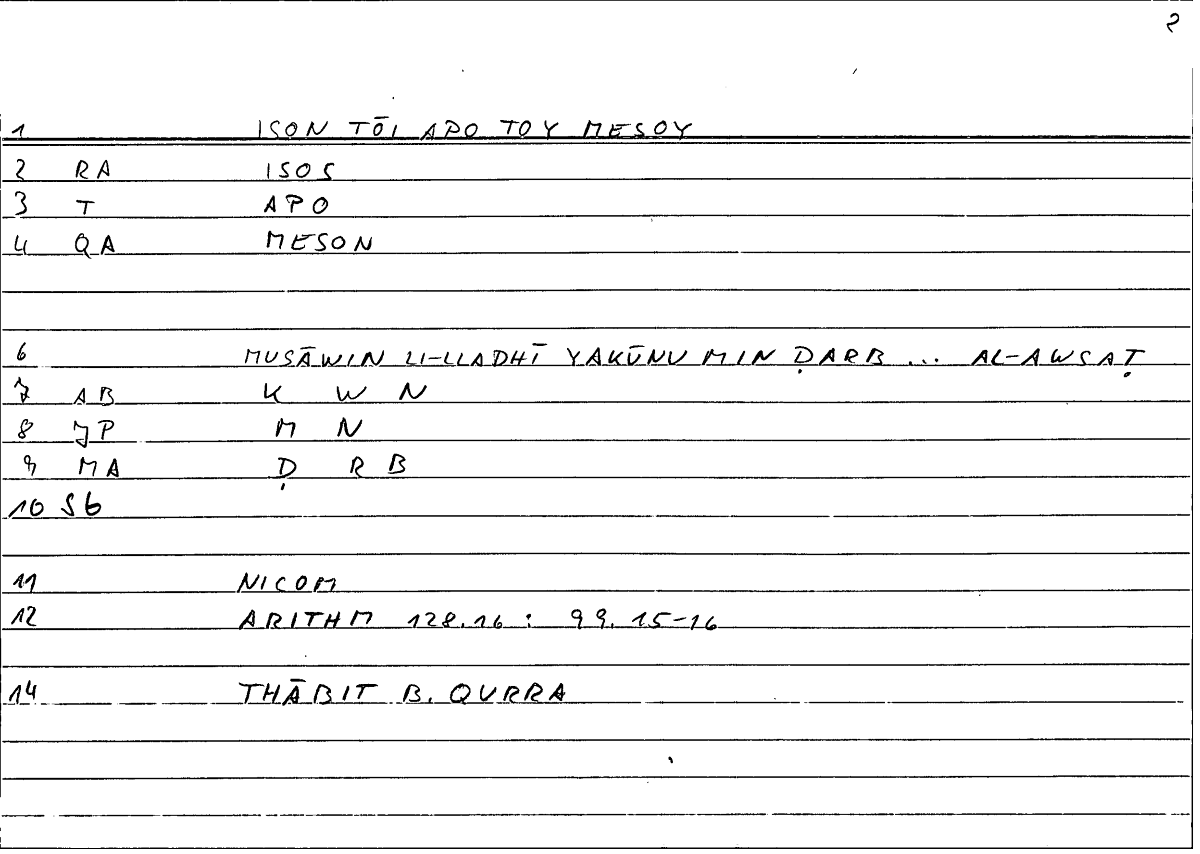 2
1 ISON TŌI APO TOY MESOY
2 RA ISOS
3 T APO
4 QA MESON
6 MUSĀWIN LI-LLADHĪ YAKŪNU MIN ḌARB ... AL-AWSAṬ
7 AB K W N
8 JP M N
9 MA Ḍ R B
10 Sb
11 NICOM
12 ARITHM 128.16 : 99.15-16
14 THĀBIT B. QURRA